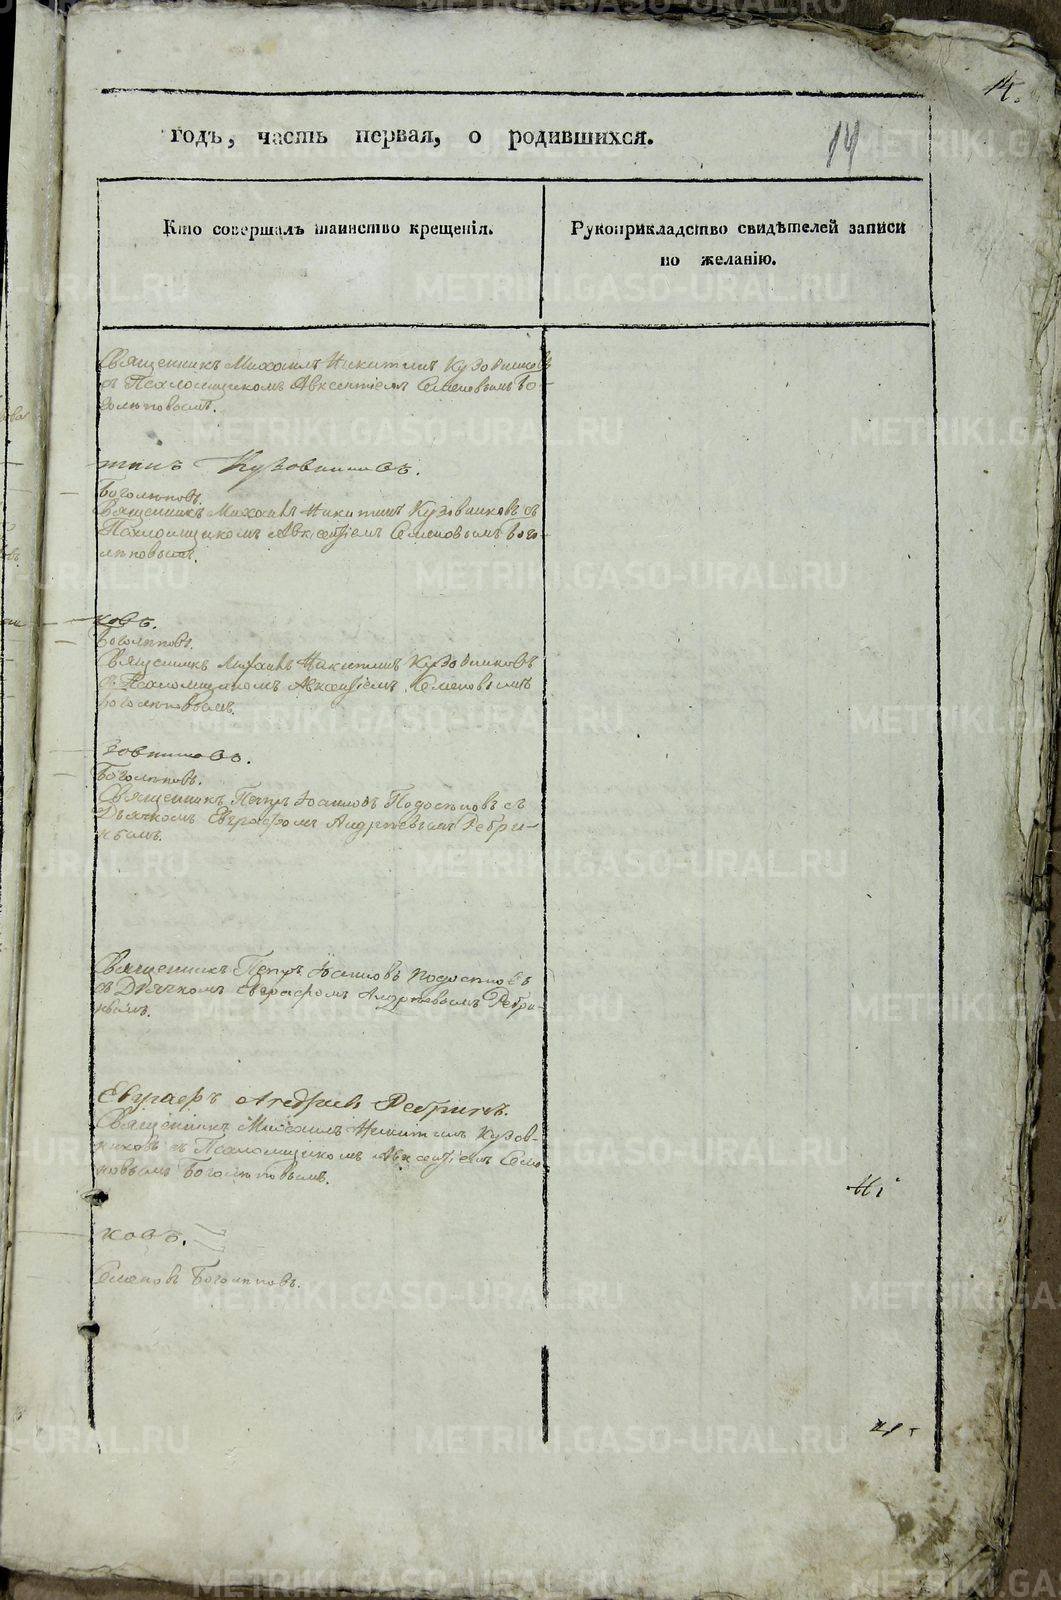 14.
годъ, часть первая, о родившихся.
14
Кто совершалъ таинство крещенія.
Рукоприкладство свидѣтелей записи
по желанію.
Священникъ Михаилъ Никитинъ Кузовниковъ
съ Псаломщикомъ Авксентіемъ Семеновымъ Бо-
голѣповымъ.
тинъ Кузовниковъ.
Боголѣповъ.
Священникъ Михаилъ Никитинъ Кузовниковъ съ
Псаломщикомъ Авксентіемъ Семеновымъ Бого-
лѣповымъ.
ковъ.
Боголѣповъ.
Священникъ Михаилъ Никитинъ Кузовниковъ
съ Псаломщикомъ Авксентіемъ Семеновымъ
Боголѣповымъ.
зовниковъ.
Боголѣповъ.
Священникъ Петръ Іоанновъ съ
Дьячкомъ Евграфомъ Андрѣевымъ Ребри-
нымъ.
Священникъ Петръ Іоанновъ
съ Дьячкомъ Евграфомъ Андрѣевымъ Ребри-
нымъ.
Евграфъ Андреевъ Ребринъ.
Священникъ Михаилъ Никитинъ Кузов-
никовъ съ Псаломщикомъ Авксентіемъ Семе-
новымъ Боголѣповымъ.
ковъ.
Семеновъ Боголѣповъ.
METRIKI.GASO-URAL.RU